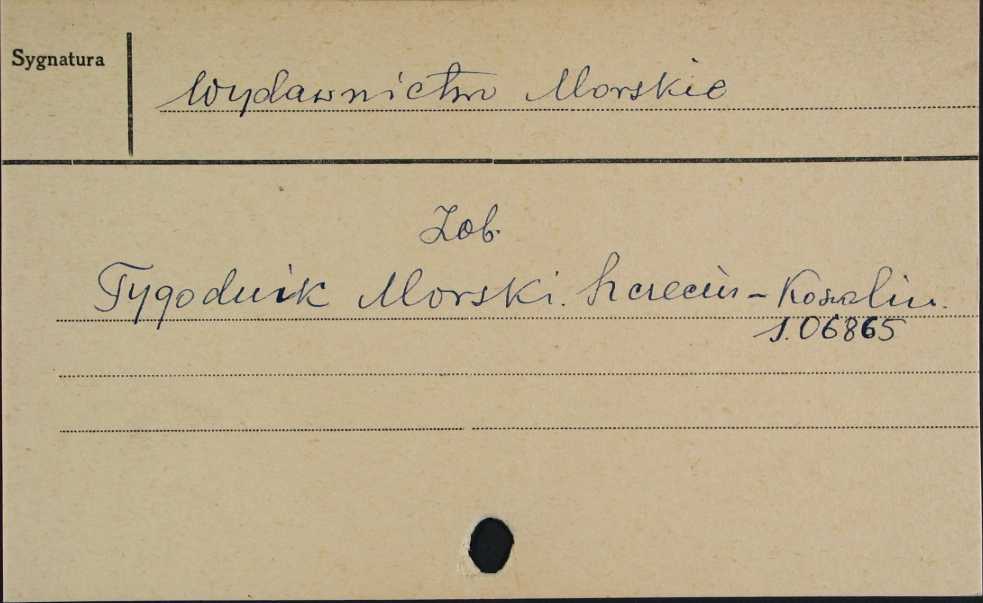 Sygnatura
Wydawnictwo Morskie
Zob.
Tygodnik Morski. Szczecin - Koszalin.
S. 06865